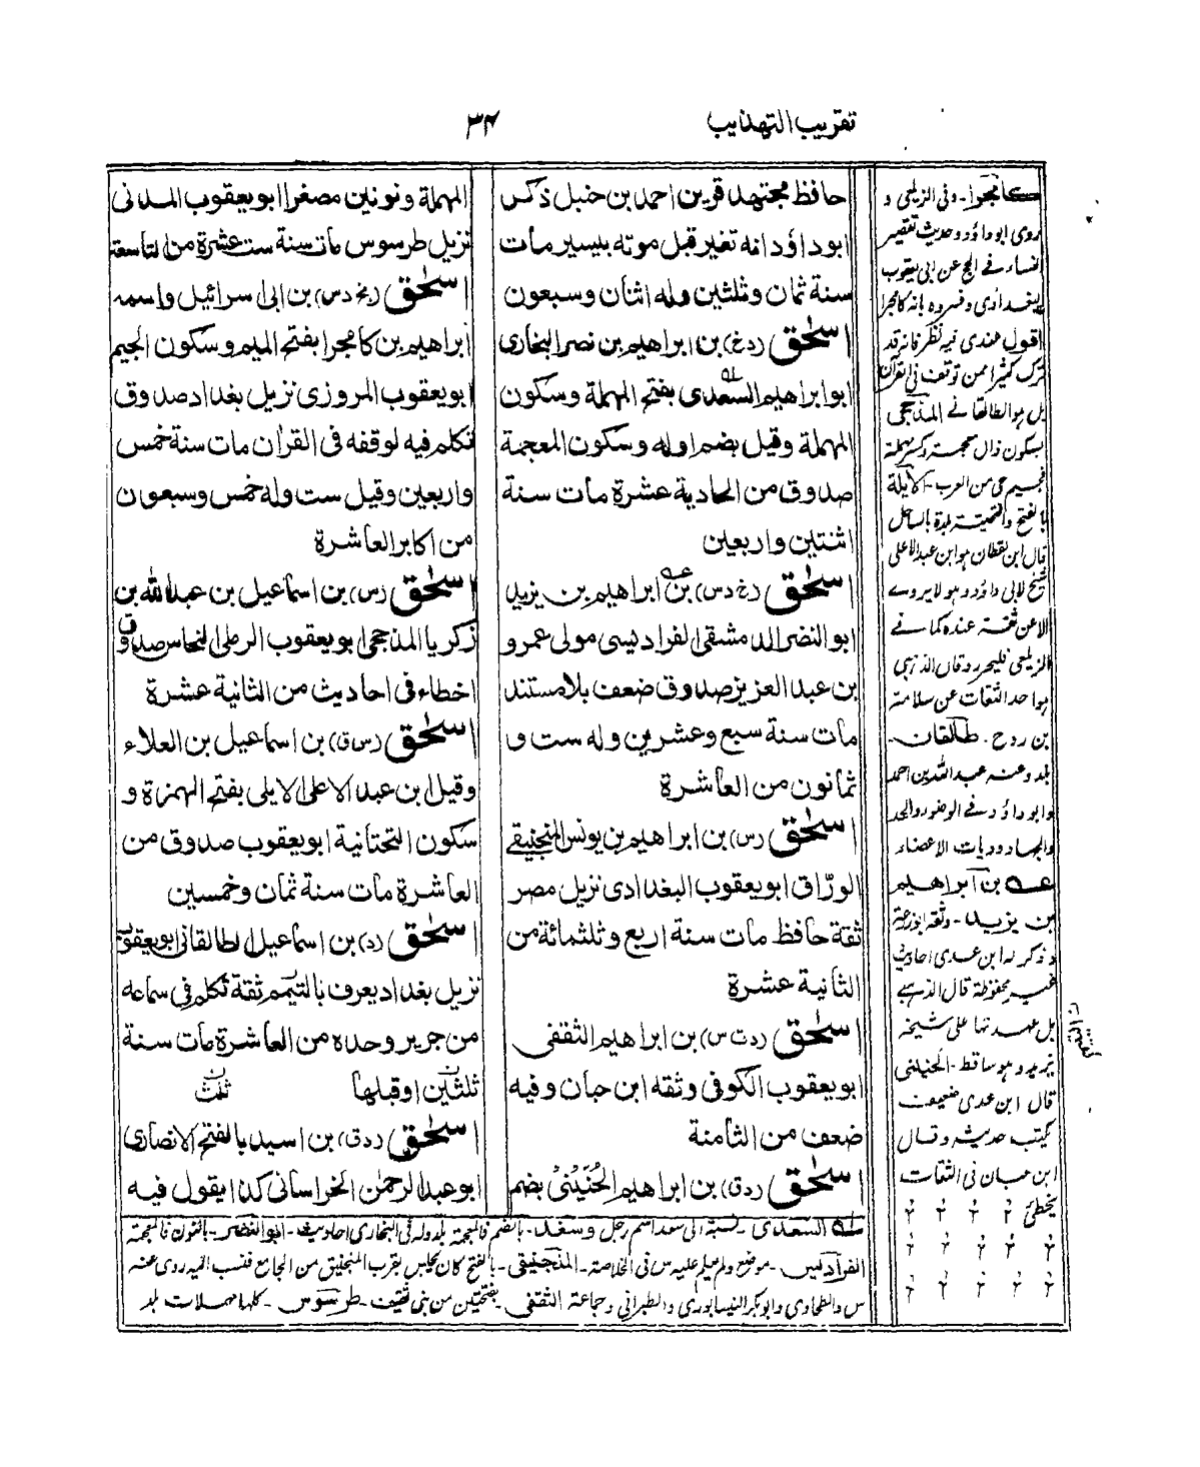 تقريب التهذيب
٣٤
حافظ مجتهد قرين احمد بن حنبل ذكر
ابو داؤد انه تغير قبل موته بيسير مات
سنة ثمان وثلثين وله اثنان وسبعون
اسحٰق (دخ) بن ابراهيم بن نصر البخارى
ابو ابراهيم السعدى بفتح المهملة وسكون
المهملة وقيل بضم اوله وسكون المعجمة
صدوق من الحادية عشرة مات سنة
اثنتين واربعين
اسحٰق (خ د س) بن ابراهيم بن يزيد
ابو النضر الدمشقى الفراديسى مولى عمرو
بن عبد العزيز صدوق ضعف بلا مستند
مات سنة سبع وعشرين وله ست و
ثمانون من العاشرة
اسحٰق (س) بن ابراهيم بن يونس المنجنيقى
الورّاق ابو يعقوب البغدادى نزيل مصر
ثقة حافظ مات سنة اربع وثلثمائة من
الثانية عشرة
اسحٰق (د ت س) بن ابراهيم الثقفى
ابو يعقوب الكوفى وثقه ابن حبان وفيه
ضعف من الثامنة
اسحٰق (د ق) بن ابراهيم الحُنَيْنىْ بضم
المهملة ونونين مصغرا ابو يعقوب المدنى
نزيل طرسوس مات سنة ست عشرة من التاسعة
اسحٰق (بخ د س) بن ابى اسرائيل واسمه
ابراهيم بن كامجرا بفتح الميم وسكون الجيم
ابو يعقوب المروزى نزيل بغداد صدوق
تكلم فيه لوقفه فى القران مات سنة خمس
واربعين وقيل ست وله خمس وسبعون
من اكابر العاشرة
اسحٰق (س) بن اسماعيل بن عبد الله بن
زكريا المذحجى ابو يعقوب الرملى النحاس صدوق
اخطاء فى احاديث من الثانية عشرة
اسحٰق (س ق) بن اسماعيل بن العلاء
وقيل ابن عبد الاعلى الايلى بفتح الهمزة و
سكون التحتانية ابو يعقوب صدوق من
العاشرة مات سنة ثمان وخمسين
اسحٰق (د) بن اسماعيل الطالقانى ابو يعقوب
نزيل بغداد يعرف باليتيم ثقة تكلم فى سماعه
من جرير وحده من العاشرة مات سنة
ثلثين او قبلها
اسحٰق (د ق) بن اسيد بالفتح الانصارى
ابو عبد الرحمٰن الخراسانى كذا يقول فيه
كامجرا - وفى الزيلعى و
روى ابو داؤد وحديث تقصير
النساء فى الحج عن ابى يعقوب
البغدادى وفسروه بانه كامجرا
اقول عندى فيه نظر فانه قد
ترك كثيرا ممن توقف فى القرآن
بل هو الطالقانى المذحجى
بسكون ذال معجمة وكسر مهملة
فجيم حى من العرب - الايلة
بالفتح والتحتية بلدة بالساحل
قال ابن القطان هو ابن عبد الاعلى
شيخ لابى داؤد وهو لا يروى
الا عن ثقة عنده كما فى
الزيلعى فليحرر وقال الذهبى
هو احد الثقات عن سلامة
بن روح - طالقان
بلد وعنه عبد الله بن احمد
وابو داؤد فى الوضوء والحد
والجهاد وديات الاعضاء
عه بن ابراهيم
بن يزيد - وثقه ابو زرعة
وذكر له ابن عدى احاديث
غير محفوظة قال الذهبى
بل عهدتها على شيخه
يزيد وهو ساقط - الحنينى
قال ابن عدى ضعيف
يكتب حديثه وقال
ابن حبان فى الثقات
يخطئ
له السعدى - نسبة الى سعد اسم رجل وسغد - بالضم فالمعجمة بلد وله فى البخارى احاديث - ابو النضر - بالنون فالمعجمة
الفراديس - موضع ولم يعلم عليه س فى الخلاصة - المنجنيقى - بالفتح كان يجلس بقرب المنجنيق من الجامع فنسب اليه روى عنه
س والطحاوى وابو بكر النيسابورى والطبرانى وجماعة الثقفى - بفتحتين من بنى ثقيف - طرسوس - كلها مهملات بلد